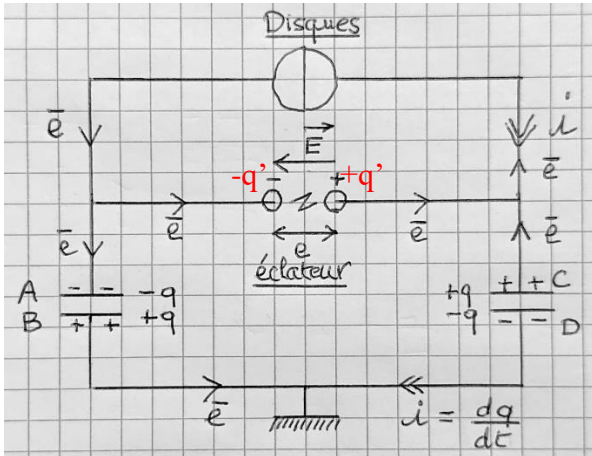 Disques
e̅
i
E
e̅
-q' - + +q'
e̅
e
e̅
e̅
e̅
éclateur
A - - -q
B + + +q
+q + + C
-q - - D
e̅
i = dq/dt